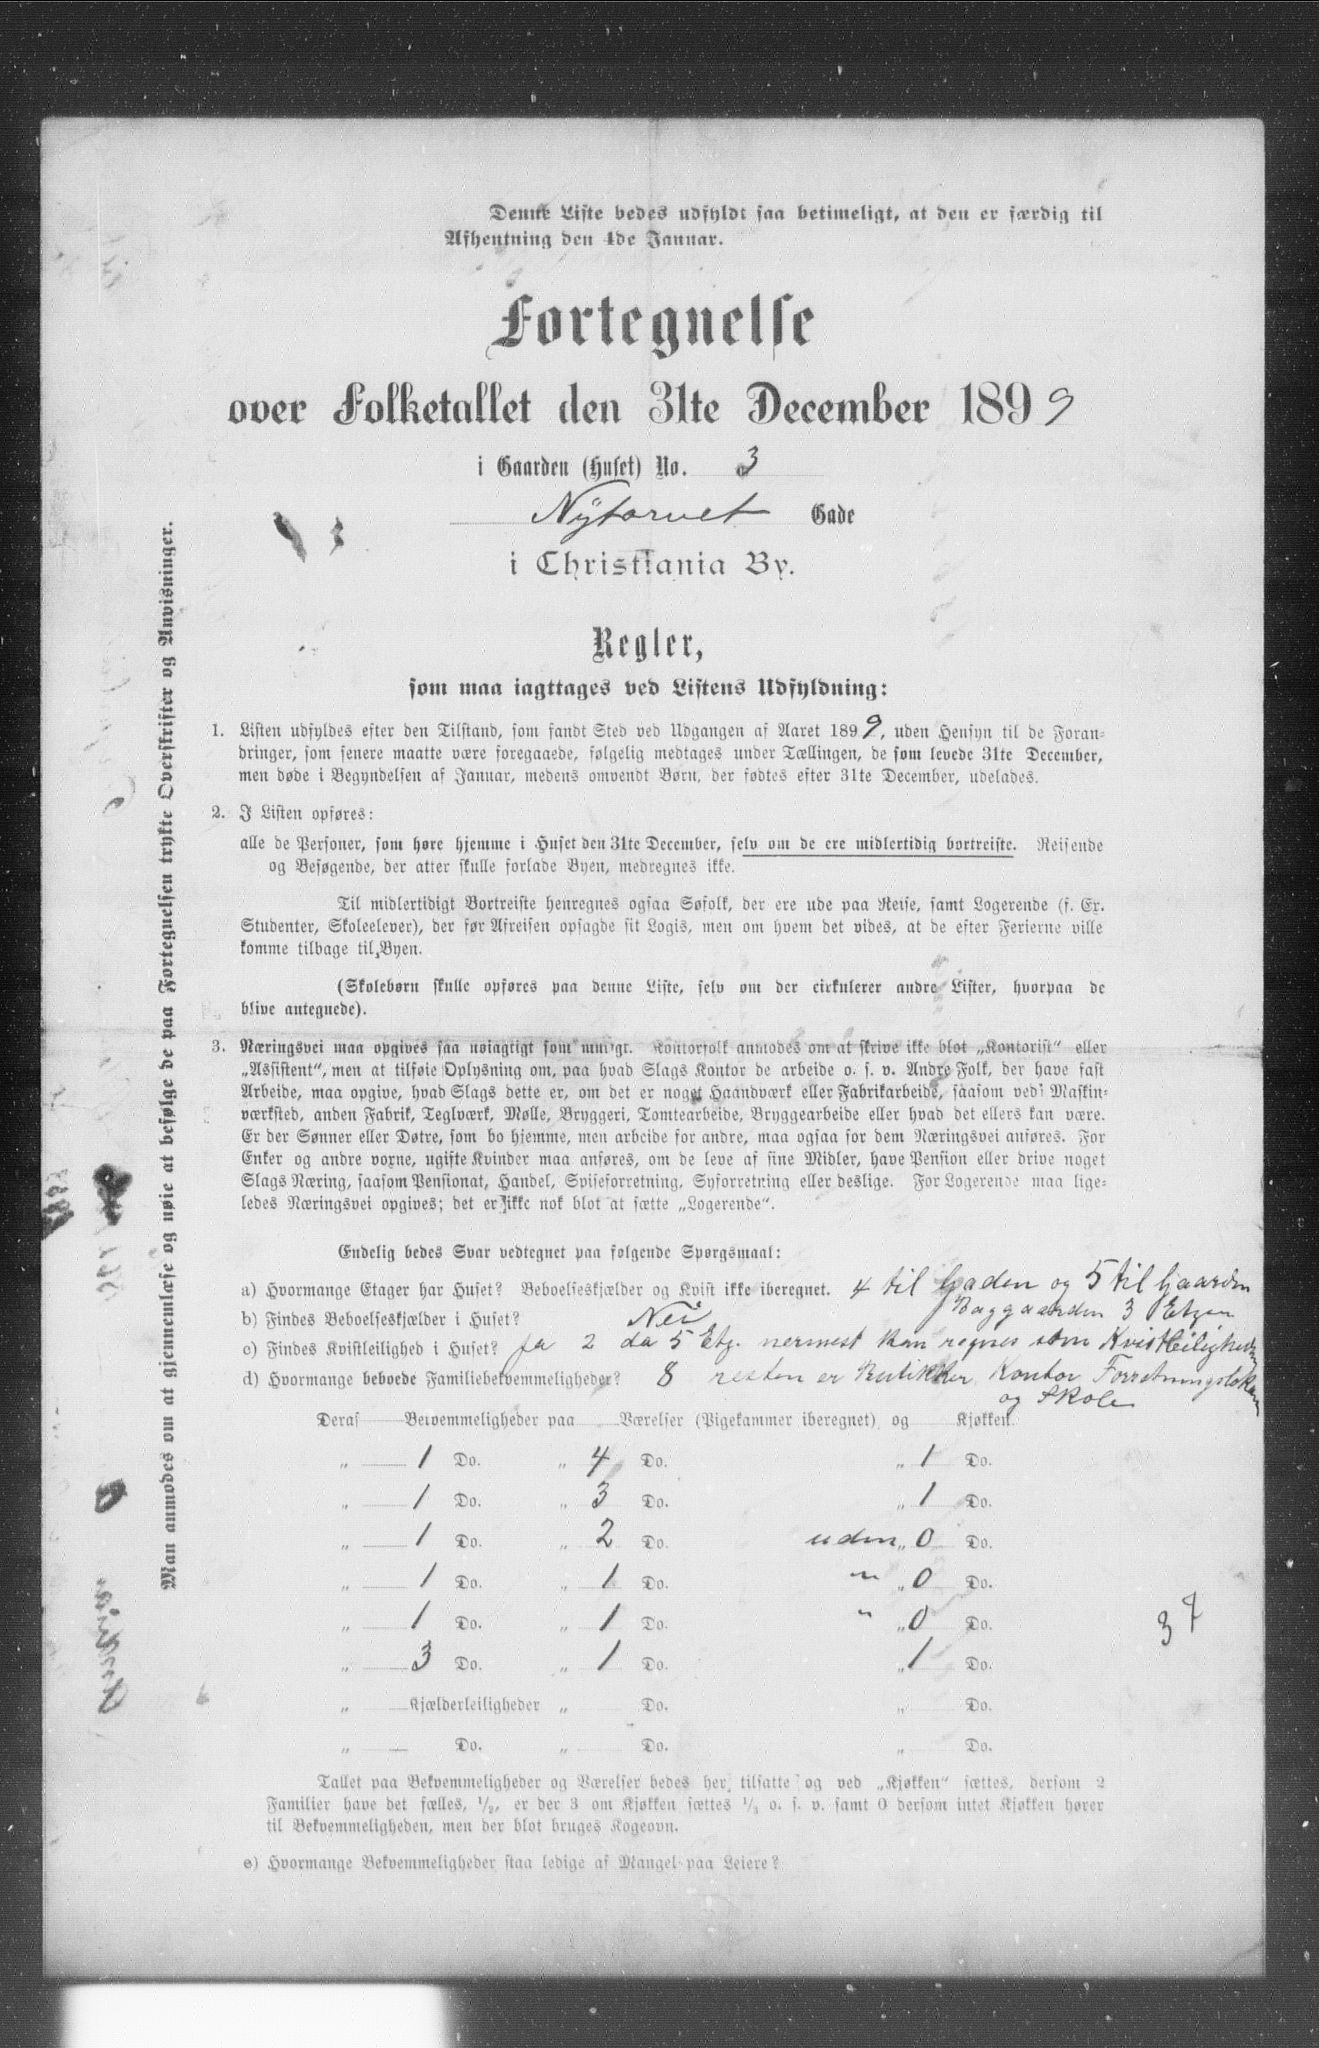 Denne Liste bedes udfyldt saa betimeligt, at den er færdig til
Afhentning den 4de Januar.
Fortegnelse
over Folketallet den 31te December 1899
i Gaarden (Huset) No. 3
Nÿtorvet Gade
i Christiania By.
Regler,
som maa iagttages ved Listens Udfyldning:
1. Listen udfyldes efter den Tilstand, som fandt Sted ved Udgangen af Aaret 1899, uden Hensyn til de Foran-
dringer, som senere maatte være foregaaede, følgelig medtages under Tællingen, de som levede 31te December,
men døde i Begyndelsen af Januar, medens omvendt Børn, der fødtes efter 31te December, udelades.
2. I Listen opføres:
alle de Personer, som høre hjemme i Huset den 31te December, selv om de ere midlertidig bortreiste. Reisende
og Besøgende, der atter skulle forlade Byen, medregnes ikke.
Til midlertidigt Bortreiste henregnes ogsaa Søfolk, der ere ude paa Reise, samt Logerende (f. Ex.
Studenter, Skoleelever), der før Afreisen opsagde sit Logis, men om hvem det vides, at de efter Ferierne ville
komme tilbage til Byen.
(Skolebørn skulle opføres paa denne Liste, selv om der cirkulerer andre Lister, hvorpaa de
blive antegnede).
3. Næringsvei maa opgives saa nøiagtigt som muligt. Kontorfolk anmodes om at skrive ikke blot „Kontorist" eller
„Assistent", men at tilføie Oplysning om, paa hvad Slags Kontor de arbeide o. s. v. Andre Folk, der have fast
Arbeide, maa opgive, hvad Slags dette er, om det er noget Haandværk eller Fabrikarbeide, saasom ved Maskin-
værksted, anden Fabrik, Teglværk, Mølle, Bryggeri, Tomtearbeide, Bryggearbeide eller hvad det ellers kan være.
Er der Sønner eller Døtre, som bo hjemme, men arbeide for andre, maa ogsaa for dem Næringsvei anføres. For
Enker og andre voxne, ugifte Kvinder maa anføres, om de leve af sine Midler, have Pension eller drive noget
Slags Næring, saasom Pensionat, Handel, Spiseforretning, Syforretning eller deslige. For Logerende maa lige-
ledes Næringsvei opgives; det er ikke nok blot at sætte „Logerende".
Endelig bedes Svar vedtegnet paa følgende Spørgsmaal:
a) Hvormange Etager har Huset? Beboelseskjælder og Kvist ikke iberegnet. 4 til Gaden og 5 til Gaarden
Baggaarden 3 Etger
b) Findes Beboelseskjælder i Huset? Nei
c) Findes Kvistleilighed i Huset? Ja 2 da 5 Etg. nermest kan regnes som Kvistleiligheder
d) Hvormange beboede Familiebekvemmeligheder? 8 resten er Butikker Kontor Forretningslokaler
og Skole
Deraf Bekvemmeligheder paa Værelser (Pigekammer iberegnet) og Kjøkken
„ 1 Do. „ 4 Do. „ 1 Do.
„ 1 Do. „ 3 Do. „ 1 Do.
„ 1 Do. „ 2 Do. uden „ 0 Do.
„ 1 Do. „ 1 Do. " „ 0 Do.
„ 1 Do. „ 1 Do. " „ 0 Do.
„ 3 Do. „ 1 Do. „ 1 Do.
„ Kjælderleiligheder „ Do. „ Do.
„ Do. „ Do. „ Do.
37
Tallet paa Bekvemmeligheder og Værelser bedes her tilsatte og ved „Kjøkken" sættes, dersom 2
Familier have det fælles, 1/2, er der 3 om Kjøkken sættes 1/3 o. s. v. samt 0 dersom intet Kjøkken hører
til Bekvemmeligheden, men der blot bruges Kogeovn.
e) Hvormange Bekvemmeligheder staa ledige af Mangel paa Leiere?
Man anmodes om at gjennemlæse og nøie at befølge de paa Fortegnelsen trykte Overskrifter og Anvisninger.